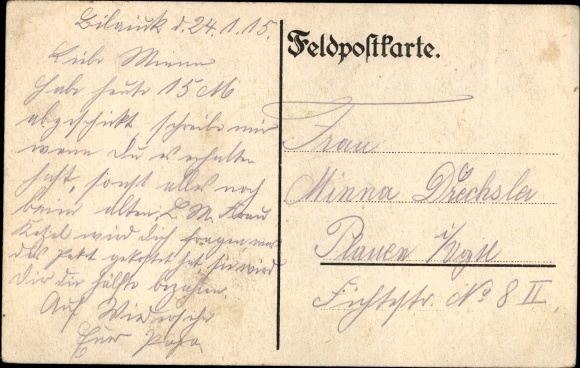 d. 24.1.15.
Liebe Minna
Habe heute 15 M
abgeschickt, schreibe mir
wenn Du es erhalten
hast, sonst alles noch
beim alten. L. M. Frau
wird dich fragen was
das gekostet hat sie wird
Dir die Hälfte bezahlen.
Auf Wiedersehn
Euer Papa
Feldpostkarte.
Frau
Minna Drechsler
Plauen i/Vgtl
Fichtestr. No 8 II